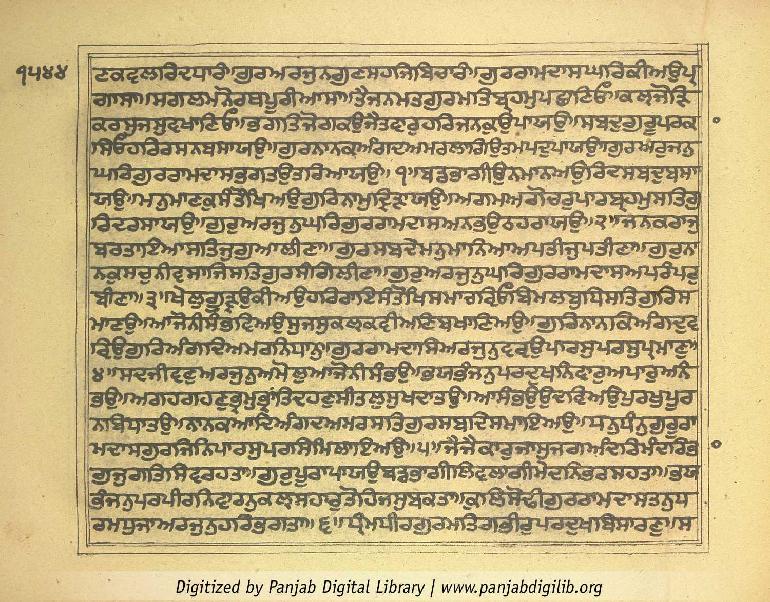 ਗੁਰਅਰਜੁਨਗੁਣਸਹਜਿਬਿਚਾਰੀ॥ਗੁਰਰਾਮਦਾਸਘਰਿਕੀਅਉਪ੍ਰ
ਗਾਸਾ॥ਸਗਲਮਨੋਰਥਪੂਰੀਆਸਾ॥ਤੈਜਨਮਤਗੁਰਮਤਿਬ੍ਰਹਮੁਪਛਾਣਿਓ॥ਕਲ੍ਯਜੋੜਿ
ਕਰਸੁਜਸੁਵਖਾਣਿਓ॥ਭਗਤਿਜੋਗਕਉਜੈਤਵਾਰੁਹਰਿਜਨਕੁਉਪਾਯਉ॥ਸਬਦੁਗੁਰੂਪਰਕਾ
ਸਿਓਹਰਿਰਸਨਬਸਾਯਉ॥ਗੁਰਨਾਨਕਅੰਗਦਅਮਰਲਾਗਿਉਤਮਪਦੁਪਾਯਉ॥ਗੁਰਅਰਜੁਨੁ
ਘਰਿਗੁਰਰਾਮਦਾਸਭਗਤਉਤਰਿਆਯਉ॥੧॥ਬਡਭਾਗੀਉਨਮਾਨਅਉਰਿਦਸਬਦੁਬਸਾ
ਯਉ॥ਮਨੁਮਾਣਕੁਸੰਤੋਖਿਅਉਗੁਰਿਨਾਮੁਦ੍ਰਿੜਾਯਉ॥ਅਗਮਅਗੋਚਰੁਪਾਰਬ੍ਰਹਮੁਸਤਿਗੁ
ਰਿਦਰਸਾਯਉ॥ਗੁਰੁਅਰਜੁਨੁਘਰਿਗੁਰਰਾਮਦਾਸਅਨਭਉਠਹਰਾਯਉ॥੨॥ਜਨਕਰਾਜੁ
ਬਰਤਾਇਆਸਤਿਜੁਗੁਆਲੀਣਾ॥ਗੁਰਸਬਦੇਮਨੁਮਾਨਿਆਅਪਤੀਜੁਪਤੀਣਾ॥ਗੁਰੁਨਾ
ਨਕੁਸਚੁਨੀਵਸਾਜਿਸਤਿਗੁਰਸੰਗਿਲੀਣਾ॥ਗੁਰੁਅਰਜੁਨੁਘਰਿਗੁਰਰਾਮਦਾਸਅਪਰੰਪਰੁ
ਬੀਣਾ॥੩॥ਖੇਲੁਗੂੜ੍ਹਉਕੀਅਉਹਰਿਰਾਇਸੰਤੋਖਿਸਮਾਚਰਿਓਬਿਮਲਬੁਧਿਸਤਿਗੁਰਿਸ
ਮਾਣਉ॥ਆਜੋਨੀਸੰਭਵਿਅਉਸੁਜਸੁਕਲ੍ਯਕਵੀਅਣਿਬਖਾਣਿਅਉ॥ਗੁਰਿਨਾਨਕਿਅੰਗਦੁਵ
ਰਿਉਗੁਰਿਅੰਗਦਿਅਮਰਨਿਧਾਨੁ॥ਗੁਰਰਾਮਦਾਸਿਅਰਜੁਨੁਵਰ੍ਯਉਪਾਰਸੁਪਰਸੁਪ੍ਰਮਾਣੁ॥
੪॥ਸਦਜੀਵਣੁਅਰਜੁਨੁਅਮੋਲੁਆਜੋਨੀਸੰਭਉ॥ਭਯਭੰਜਨੁਪਰਦੁਖਨਿਵਾਰੁਅਪਾਰੁਅਨੰ
ਭਉ॥ਅਗਹਗਹਣੁਭ੍ਰਮੁਭ੍ਰਾਂਤਿਦਹਣੁਸੀਤਲੁਸੁਖਦਾਤਉ॥ਆਸੰਭਉਉਦਵਿਅਉਪੁਰਖੁਪੂਰ
ਨਾਬਿਧਾਤਉ॥ਨਾਨਕਆਦਿਅੰਗਦਅਮਰਸਤਿਗੁਰਸਬਦਿਸਮਾਇਅਉ॥ਧਨੁਧੰਨੁਗੁਰਰਾ
ਮਦਾਸਗੁਰਜਿਨਿਪਾਰਸੁਪਰਸਿਮਿਲਾਇਅਉ॥੫॥ਜੈਜੈਕਾਰੁਜਾਸੁਜਗਅੰਦਰਿਮੰਦਰਿਭਾ
ਗੁਜੁਗਤਿਸਿਵਰਹਤਾ॥ਗੁਰੁਪੂਰਾਪਾਯਉਬਡਭਾਗੀਲਿਵਲਾਗੀਮੇਦਨਿਭਰਸਹਤਾ॥ਭਯ
ਭੰਜਨੁਪਰਪੀਰਨਿਵਾਰਨੁਕਲ੍ਯਸਹਾਰੁਤੋਹਿਜਸੁਬਕਤਾ॥ਕੁਲਿਸੋਢੀਗੁਰਰਾਮਦਾਸਤਨੁਧ
ਰਮਧੁਜਾਅਰਜੁਨੁਹਰਿਭਗਤਾ॥੬॥ਧ੍ਰੰਮਧੀਰੁਗੁਰਮਤਿਗਭੀਰੁਪਰਦੁਖਬਿਸਾਰਣੁ॥ਸ
੧੫੪੪
Digitized by Panjab Digital Library | www.panjabdigilib.org